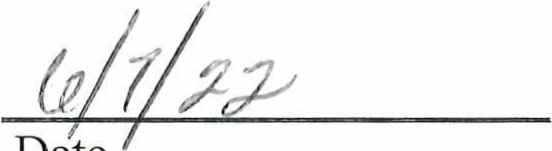 6/7/22
Date